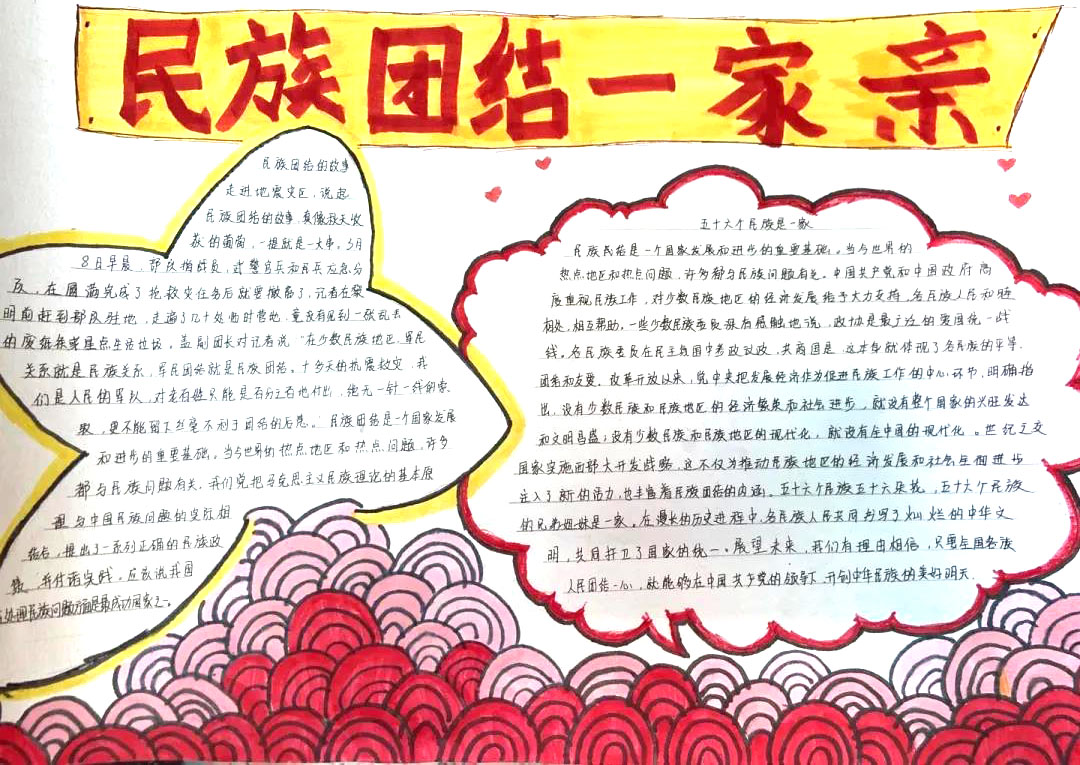 民族团结一家亲
民族团结的故事
走进地震灾区，说起
民族团结的故事，真像秋天收
获的葡萄，一提就是一大串。3月
8日早晨，部队指战员，武警官兵和民兵应急分
队，在圆满完成了抢救灾任务后就要撤离了，记者在黎
明前赶到部队驻地，走遍了几十处临时营地，竟没有见到一张乱丢
的废纸或星点生活垃圾。孟副团长对记者说"在少数民族地区，军民
关系就是民族关系，军民团结就是民族团结。十多天的抗震救灾，我
们是人民的军队，对老百姓只能是百分之百地付出，绝无一针一线的索
取，更不能留下丝毫不利于团结的后患。民族团结是一个国家发展
和进步的重要基础。当今世界的热点地区和热点问题，许多
都与民族问题有关，我们党把马克思主义民族理论的基本原
理与中国民族问题的实际相
结合，提出了一系列正确的民族政
策，并付诸实践。应该说我国
处理民族问题方面是最成功国家之一。
五十六个民族是一家
民族民结是一个国家发展和进步的重要基础。当今世界的
热点地区和热点问题，许多都与民族问题有关。中国共产党和中国政府高
度重视民族工作，对少数民族地区的经济发展给予大力支持，各民族人民和睦
相处，相互帮助，一些少数民族委员深有感触地说，政协是最广泛的爱国统一战
线。各民族委员在民主协国中参政议政，共商国是，这本身就体现了各民族的平等、
团结和友爱。改革开放以来，党中央把发展经济作为促进民族工作的中心环节，明确指
出，没有少数民族和民族地区的经济繁荣和社会进步，就没有整个国家的兴旺发达
和文明昌盛；没有少数民族和民族地区的现代化，就没有全中国的现代化。世纪之交
国家实施西部大开发战略，这不仅为推动民族地区的经济发展和社会全面进步
注入了新的活力，也丰富着民族团结的内涵。五十六个民族五十六朵花，五十六个民族
的兄弟姐妹是一家。在漫长的历史进程中，各民族人民共同书写了灿烂的中华文
明，共同捍卫了国家的统一。展望未来，我们有理由相信，只要全国各族
人民团结一心，就能够在中国共产党的领导下，开创中华民族的美好明天。